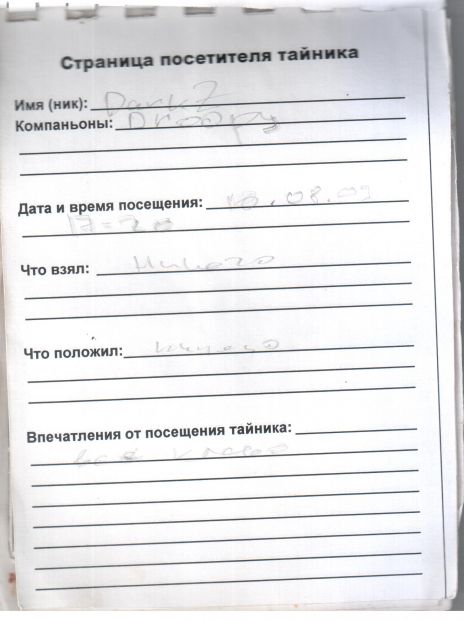 Страница посетителя тайника
Имя (ник): DarkZ
Компаньоны: Droopy
Дата и время посещения: 18.08.09
Что взял: Ничего
Что положил: ничего
Впечатления от посещения тайника:
все